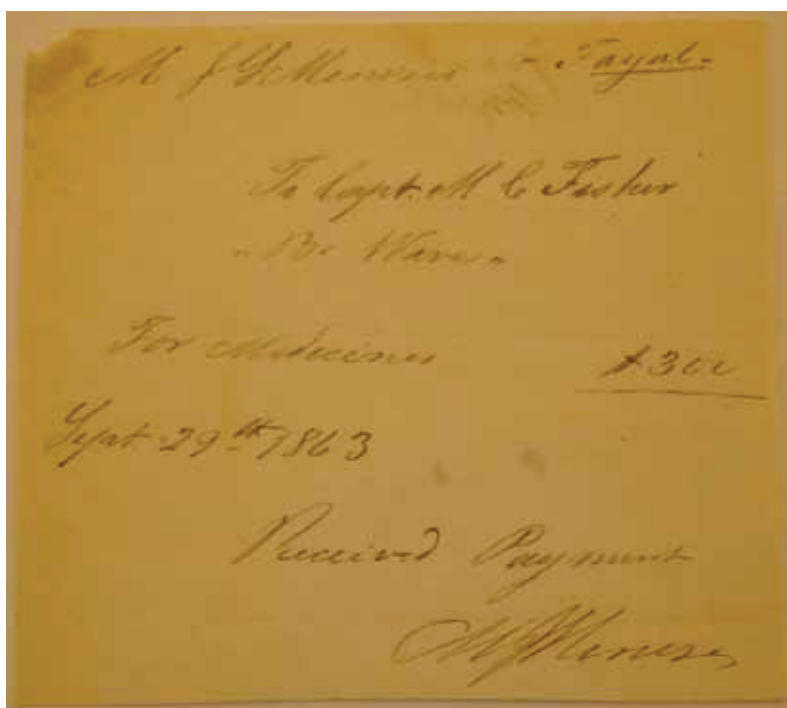 M J Menezes - Fayal -
To Capt. M C Fisher
" B. Wave "
For Medicines $300
Sept 29th 1863
Received Payment
M J Menezes